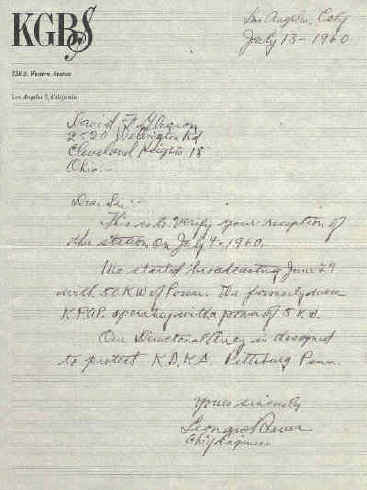 KGBS
338 S. Western Avenue
Los Angeles 5, California
Los Angeles, Caly
July 13 - 1960
David F.
2520 Wellington Rd
Cleveland Heights 18
Ohio -
Dear Sir: -
This is to verify your reception of
this station on July 9 - 1960.
We started broadcasting June 29
with 50 KW of Power. We formerly were
K.P.O.P. operating with a power of 5 KW.
Our Directional is designed
to protect K.D.K.A. Pittsburg Penn.
Yours sincerely
Chief Engineer